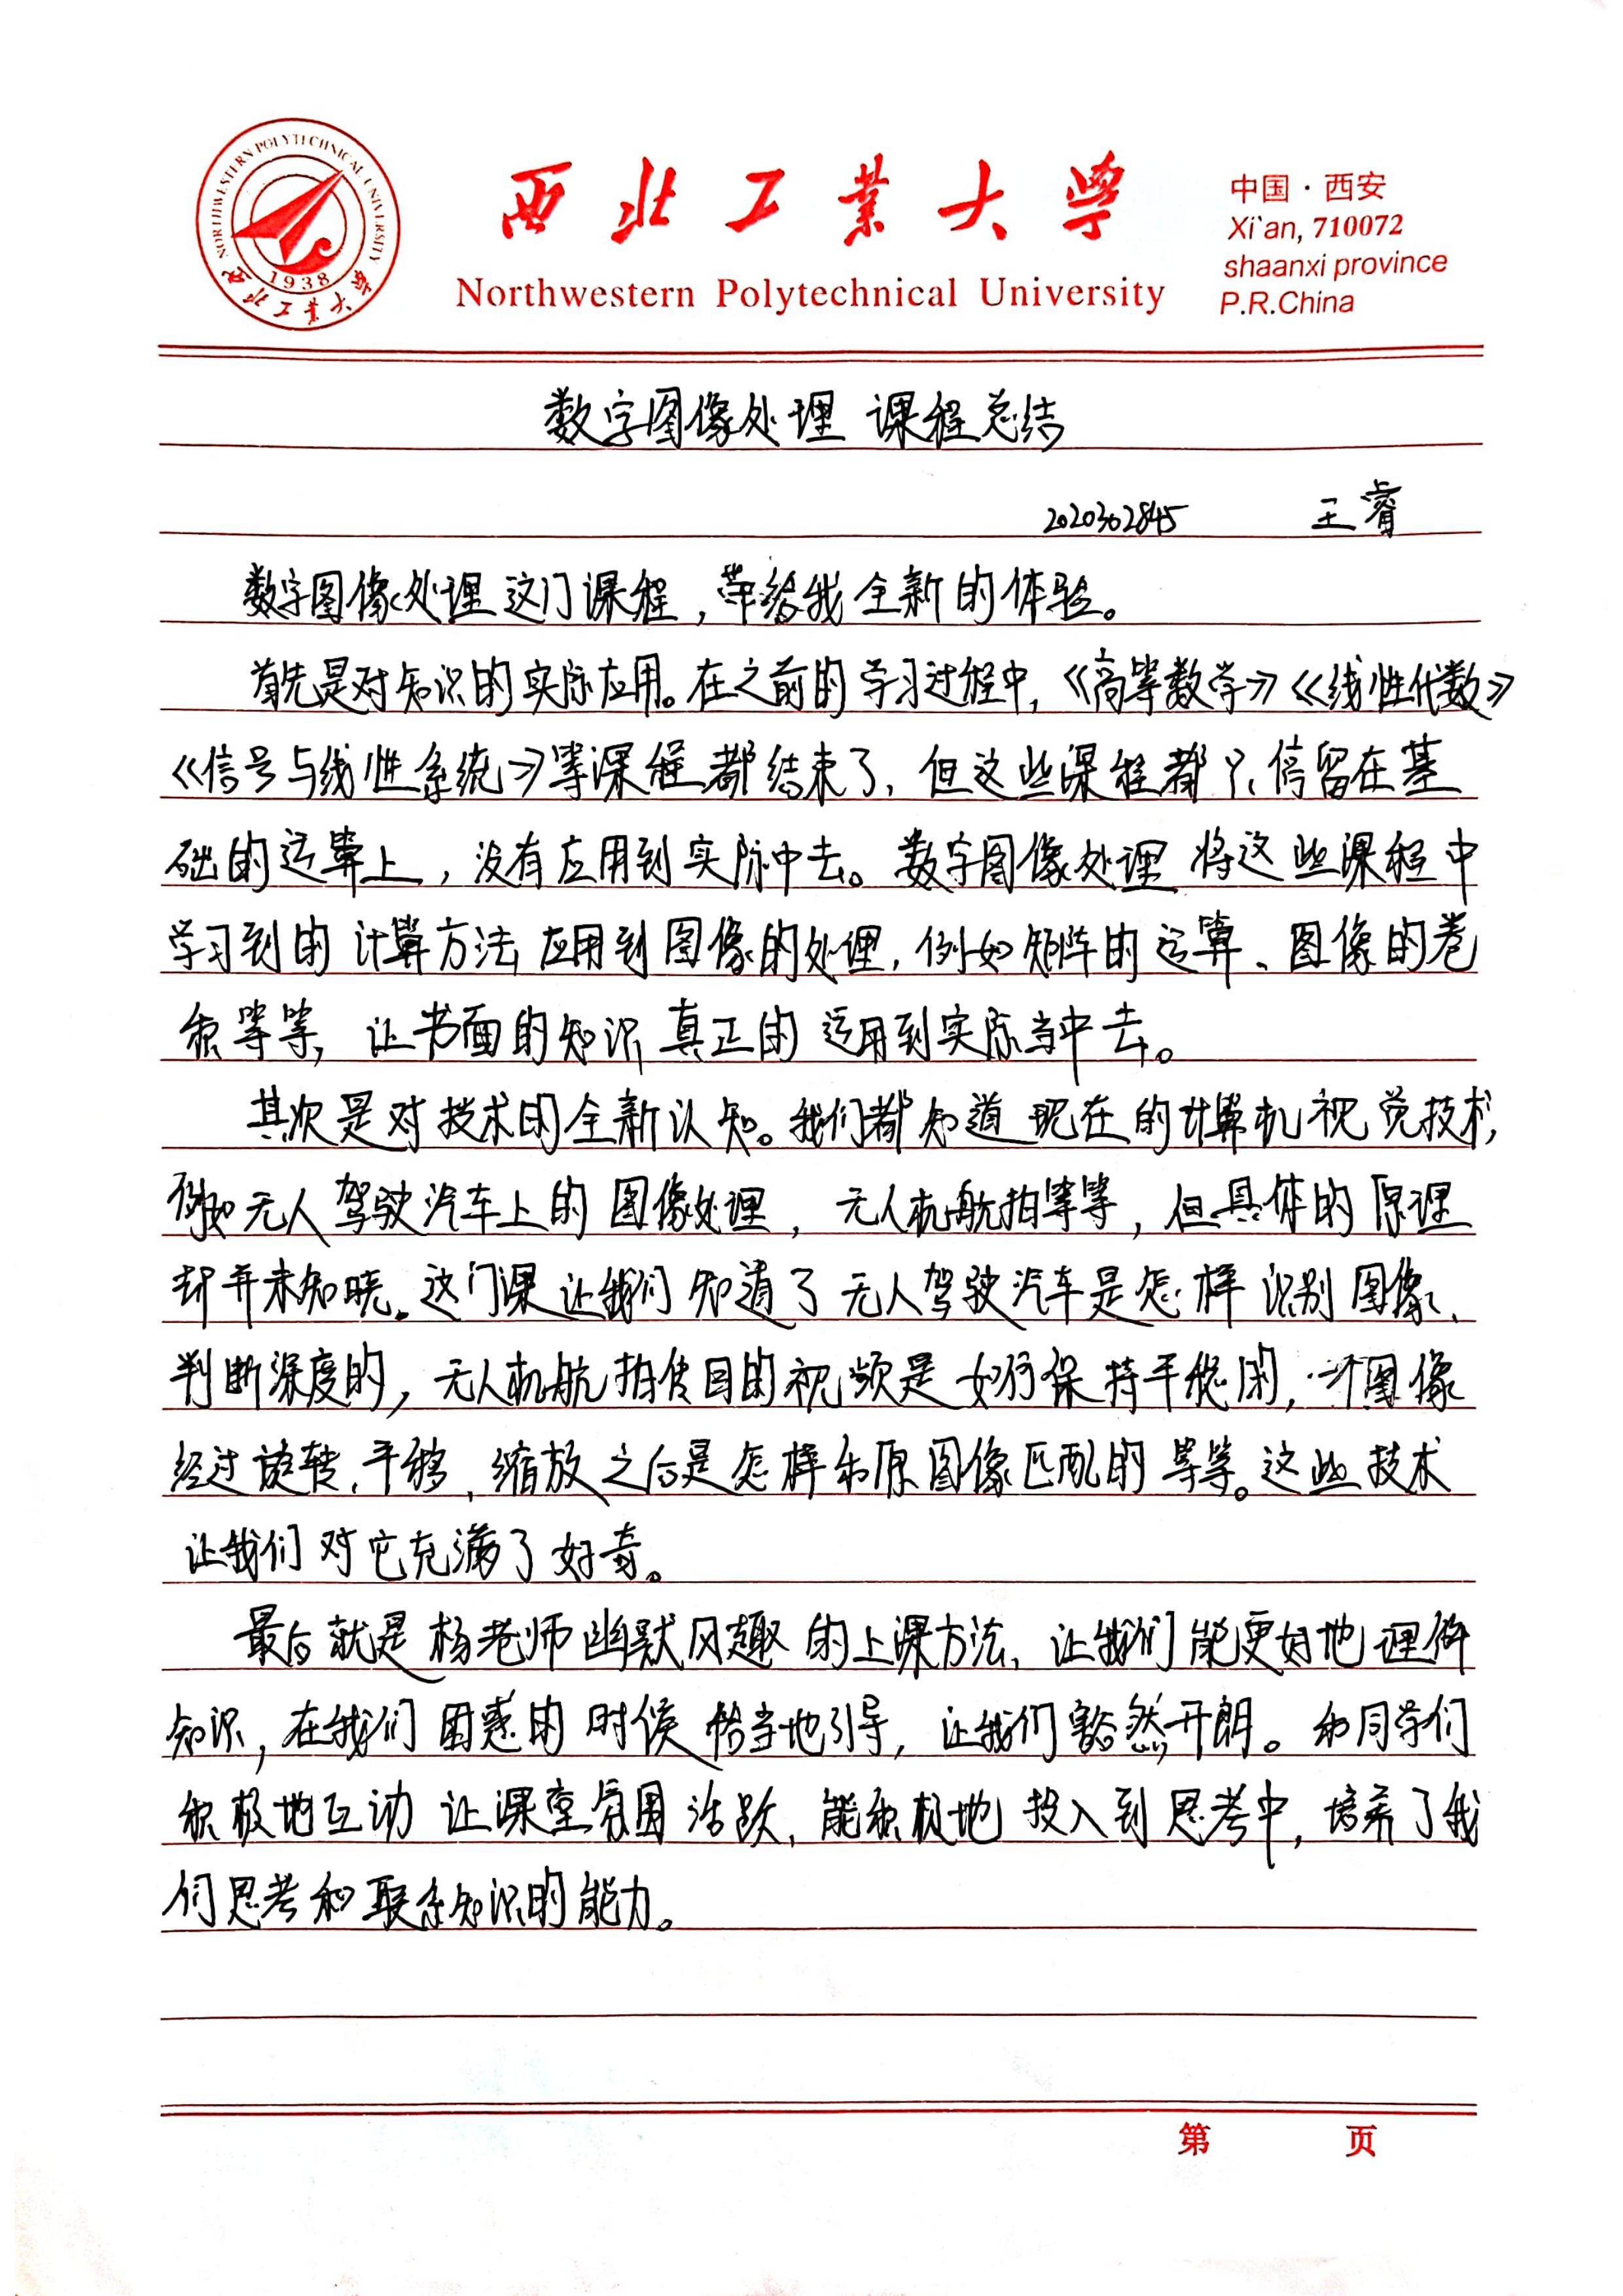 NORTHWESTERN POLYTECHNICAL UNIVERSITY
1938
西北工业大学
西北工业大学
Northwestern Polytechnical University
中国·西安
Xi'an, 710072
shaanxi province
P.R.China
数字图像处理 课程总结
2020302845 王睿
数字图像处理这门课程，带给我全新的体验。
首先是对知识的实际应用。在之前的学习过程中，《高等数学》《线性代数》
《信号与线性系统》等课程都结束了，但这些课程都只停留在基
础的运算上，没有应用到实际中去。数字图像处理将这些课程中
学习到的计算方法应用到图像的处理，例如矩阵的运算、图像的卷
积等等，让书面的知识真正的运用到实际当中去。
其次是对技术的全新认知。我们都知道现在的计算机视觉技术，
例如无人驾驶汽车上的图像处理，无人机航拍等等，但具体的原理
却并未知晓。这门课让我们知道了无人驾驶汽车是怎样识别图像、
判断深度的，无人机航拍传回的视频是如何保持平稳的，一个图像
经过旋转、平移、缩放之后是怎样和原图像匹配的等等。这些技术
让我们对它充满了好奇。
最后就是杨老师幽默风趣的上课方法，让我们能更好地理解
知识，在我们困惑的时候恰当地引导，让我们豁然开朗。和同学们
积极地互动让课堂氛围活跃，能积极地投入到思考中，培养了我
们思考和联系知识的能力。
第 页